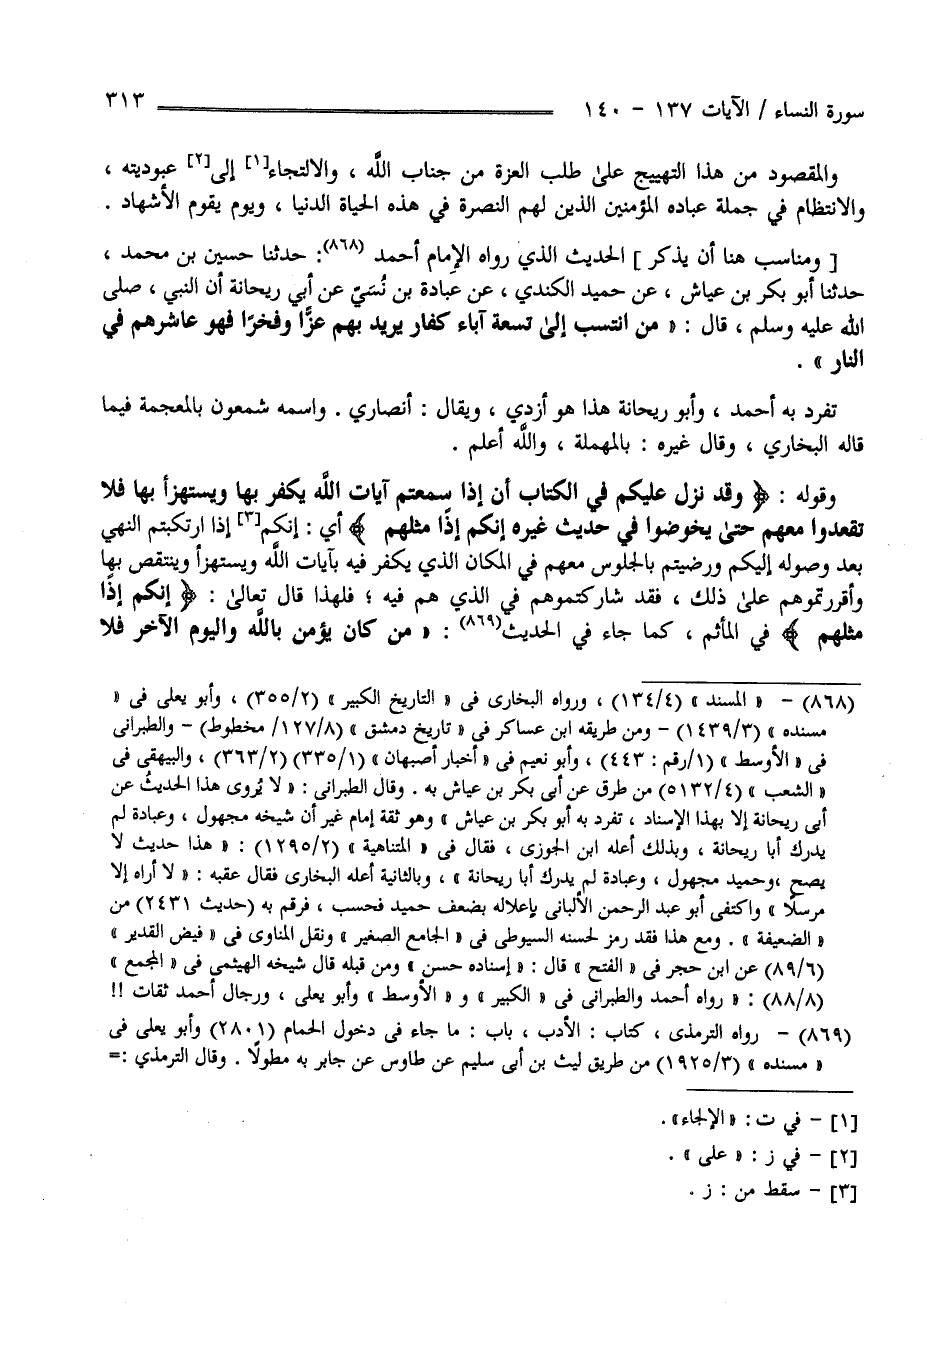 سورة النساء / الآيات ١٣٧ - ١٤٠ ٣١٣
والمقصود من هذا التهييج علىٰ طلب العزة من جناب اللَّه ، والالتجاء[١] إلى[٢] عبوديته ،
والانتظام في جملة عباده المؤمنين الذين لهم النصرة في هذه الحياة الدنيا ، ويوم يقوم الأشهاد .
[ ومناسب هنا أن يذكر ] الحديث الذي رواه الإمام أحمد (٨٦٨): حدثنا حسين بن محمد ،
حدثنا أبو بكر بن عياش ، عن حميد الكندي ، عن عبادة بن نُسَيّ عن أبي ريحانة أن النبي ، صلى
الله عليه وسلم ، قال : « من انتسب إلىٰ تسعة آباء كفار يريد بهم عزًّا وفخرًا فهو عاشرهم في
النار » .
تفرد به أحمد ، وأبو ريحانة هذا هو أزدي ، ويقال : أنصاري . واسمه شمعون بالمعجمة فيما
قاله البخاري ، وقال غيره : بالمهملة ، واللَّه أعلم .
وقوله : ﴿ وقد نزل عليكم في الكتاب أن إذا سمعتم آيات اللَّه يكفر بها ويستهزأ بها فلا
تقعدوا معهم حتىٰ يخوضوا في حديث غيره إنكم إذًا مثلهم ﴾ أي : إنكم[٣] إذا ارتكبتم النهي
بعد وصوله إليكم ورضيتم بالجلوس معهم في المكان الذي يكفر فيه بآيات اللَّه ويستهزأ وينتقص بها
وأقررتموهم علىٰ ذلك ، فقد شاركتموهم في الذي هم فيه ؛ فلهذا قال تعالىٰ : ﴿ إنكم إذًا
مثلهم ﴾ في المأثم ، كما جاء في الحديث(٨٦٩) : « من كان يؤمن باللَّه واليوم الآخر فلا
(٨٦٨) - « المسند » (١٣٤/٤) ، ورواه البخارى فى « التاريخ الكبير » (٣٥٥/٢) ، وأبو يعلى فى «
مسنده » (١٤٣٩/٣) - ومن طريقه ابن عساكر فى « تاريخ دمشق » (١٢٧/٨/ مخطوط) - والطبرانى
فى « الأوسط » (١/رقم : ٤٤٣) ، وأبو نعيم فى « أخبار أصبهان » (٣٣٥/١) (٣٦٣/٢) ، والبيهقى فى
« الشعب » (٥١٣٢/٤) من طرق عن أبى بكر بن عياش به . وقال الطبرانى : « لا يُروى هذا الحديثُ عن
أبى ريحانة إلا بهذا الإسناد ، تفرد به أبو بكر بن عياش » وهو ثقة إمام غير أن شيخه مجهول ، وعبادة لم
يدرك أبا ريحانة ، وبذلك أعله ابن الجوزى ، فقال فى « المتناهية » (١٢٩٥/٢) : « هذا حديث لا
يصح ،وحميد مجهول ، وعبادة لم يدرك أبا ريحانة » ، وبالثانية أعله البخارى فقال عقبه : « لا أراه إلا
مرسلًا » واكتفى أبو عبد الرحمن الألبانى بإعلاله بضعف حميد فحسب ، فرقم به (حديث ٢٤٣١) من
« الضعيفة » . ومع هذا فقد رمز لحسنه السيوطى فى « الجامع الصغير » ونقل المناوى فى « فيض القدير »
(٨٩/٦) عن ابن حجر فى « الفتح » قال : « إسناده حسن » ومن قبله قال شيخه الهيثمى فى « المجمع »
(٨٨/٨) : « رواه أحمد والطبرانى فى « الكبير » و « الأوسط » وأبو يعلى ، ورجال أحمد ثقات !!
(٨٦٩) - رواه الترمذى ، كتاب : الأدب ، باب : ما جاء فى دخول الحمام (٢٨٠١) وأبو يعلى فى
« مسنده » (١٩٢٥/٣) من طريق ليث بن أبى سليم عن طاوس عن جابر به مطولًا . وقال الترمذي :=
[١] - في ت : «الإلجاء» .
[٢] - في ز : « على » .
[٣] - سقط من : ز .